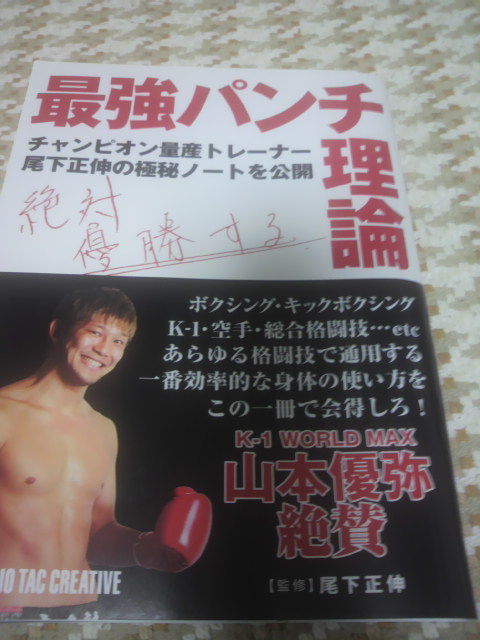 最強パンチ理論
チャンピオン量産トレーナー
尾下正伸の極秘ノートを公開
絶対
優勝する
ボクシング・キックボクシング
K-1・空手・総合格闘技…etc
あらゆる格闘技で通用する
一番効率的な身体の使い方を
この一冊で会得しろ！
K-1 WORLD MAX
山本優弥
絶賛
【監修】尾下正伸
TAC CREATIVE